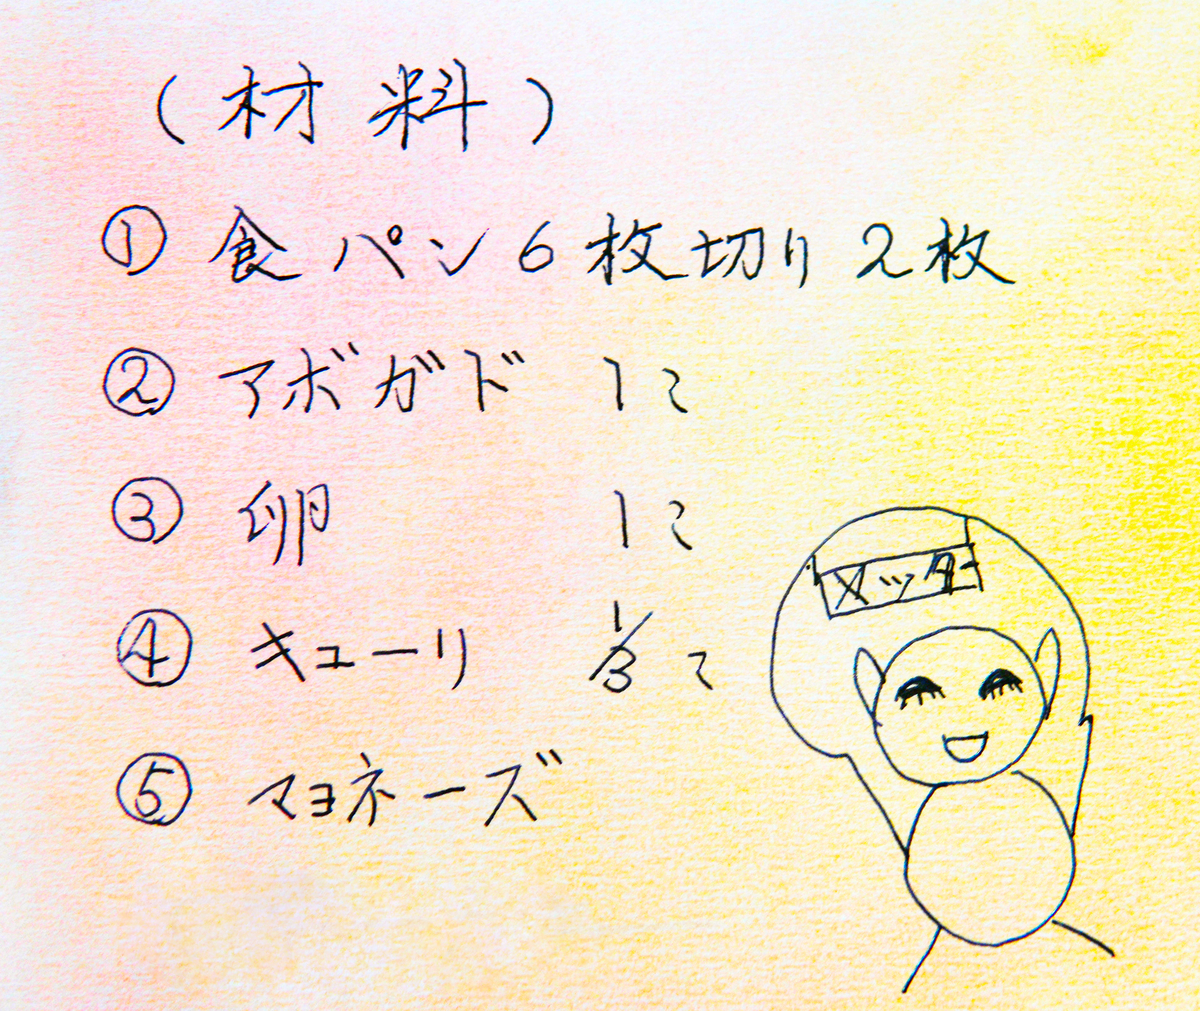 (材料)
① 食パン6枚切り2枚
② アボガド 1こ
③ 卵 1こ
④ キューリ 1/3こ
⑤ マヨネーズ
メッター